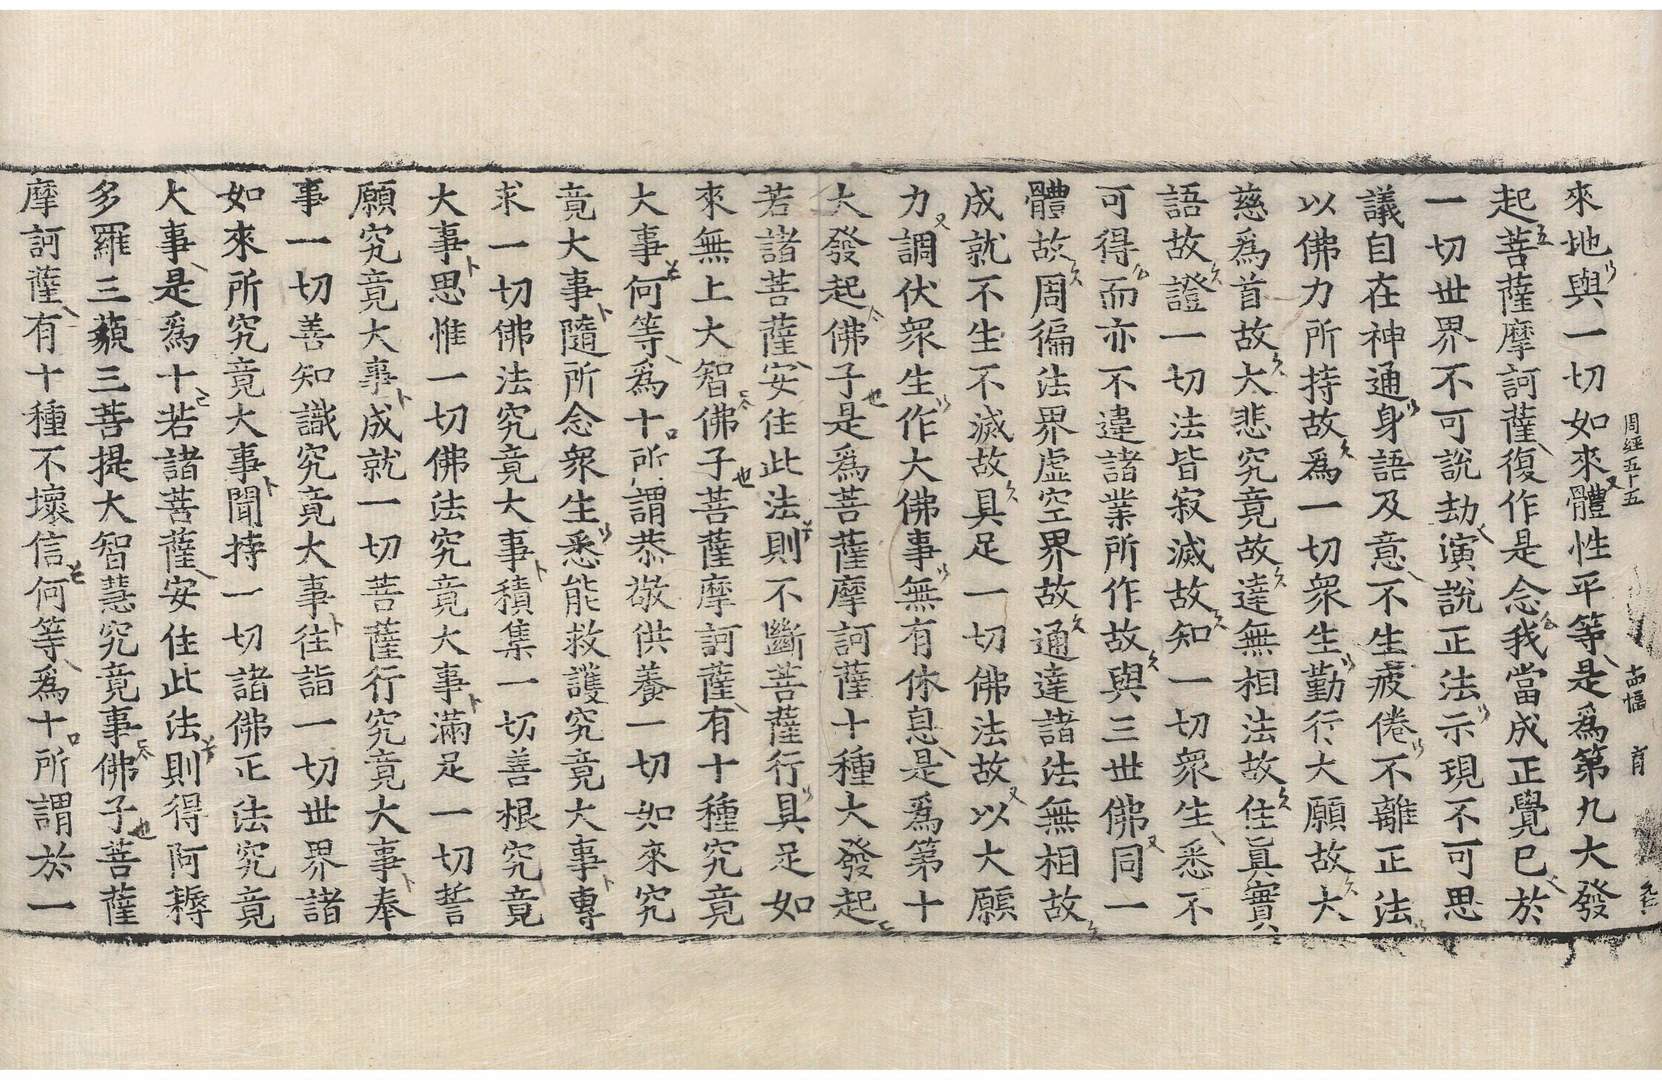 周經五十五
來地與一切如來體性平等是爲第九大發
起菩薩摩訶薩復作是念我當成正覺已於
一切世界不可說劫演說正法示現不可思
議自在神通身語及意不生疲倦不離正法
以佛力所持故爲一切衆生勤行大願故大
慈爲首故大悲究竟故達無相法故住眞實
語故證一切法皆寂滅故知一切衆生悉不
可得而亦不違諸業所作故與三世佛同一
體故周徧法界虛空界故通達諸法無相故
成就不生不滅故具足一切佛法故以大願
力調伏衆生作大佛事無有休息是爲第十
大發起佛子是爲菩薩摩訶薩十種大發起
若諸菩薩安住此法則不斷菩薩行具足如
來無上大智佛子菩薩摩訶薩有十種究竟
大事何等爲十所謂恭敬供養一切如來究
竟大事隨所念衆生悉能救護究竟大事專
求一切佛法究竟大事積集一切善根究竟
大事思惟一切佛法究竟大事滿足一切誓
願究竟大事成就一切菩薩行究竟大事奉
事一切善知識究竟大事往詣一切世界諸
如來所究竟大事聞持一切諸佛正法究竟
大事是爲十若諸菩薩安住此法則得阿耨
多羅三藐三菩提大智慧究竟事佛子菩薩
摩訶薩有十種不壞信何等爲十所謂於一